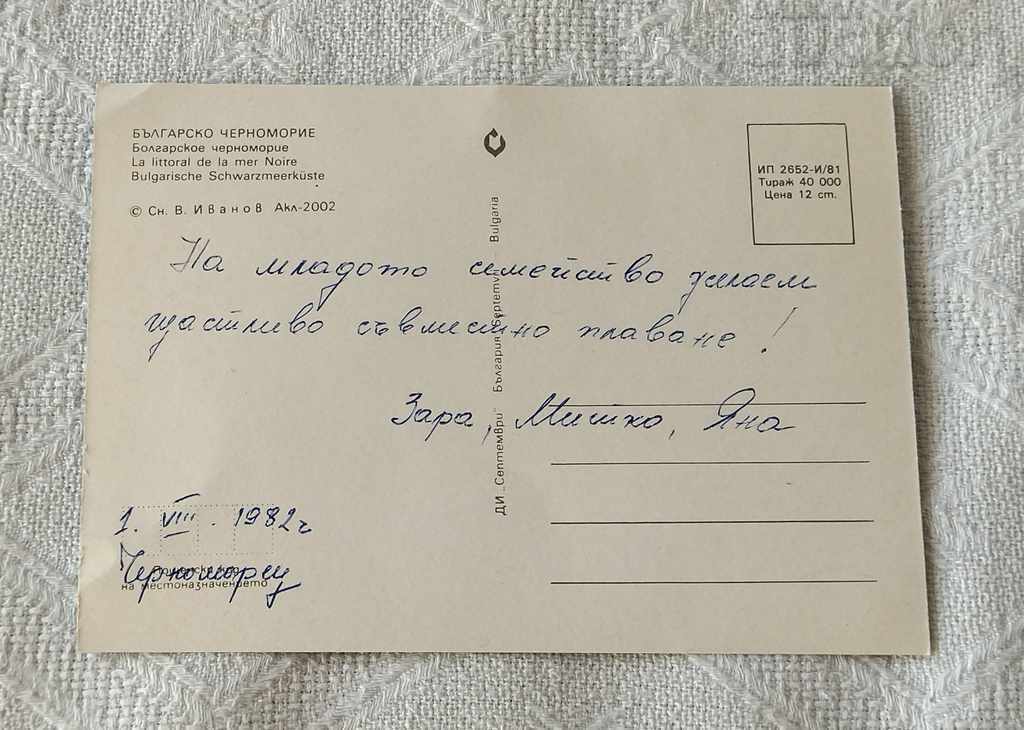 БЪЛГАРСКО ЧЕРНОМОРИЕ
Болгарское черноморие
La littoral de la mer Noire
Bulgarische Schwarzmeerküste
© Сн. В. Иванов Акл-2002
ИП 2652-И/81
Тираж 40 000
Цена 12 ст.
На младото семейство желаем
щастливо съвместно плаване!
Зара, Митко, Яна
1. VIII. 1982 г
Черноморец
на местоназначението
ДИ „Септември" България Septemvri Bulgaria